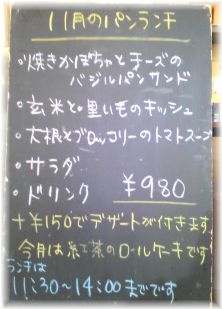 11月のパンランチ
・焼きかぼちゃとチーズの
バジルパンサンド
・玄米と里いものキッシュ
・大根とブロッコリーのトマトスープ
・サラダ
・ドリンク ¥980
+¥150でデザートが付きます
今月は紅茶のロールケーキです
ランチは
11:30~14:00までです